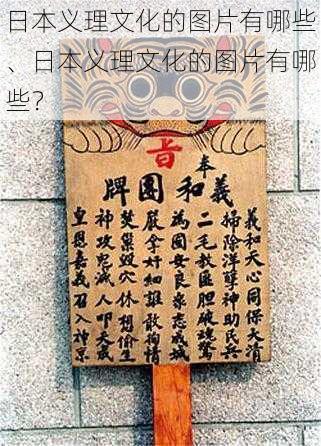 日本义理文化的图片有哪些
、日本义理文化的图片有哪
些？
奉
旨
義和團牌
義和天心同保大清
掃除洋孽神助民兵
二毛教匪胆破魂驚
為國安良衆志成城
嚴拿奸細誰敢徇情
焚巢毀穴休想偷生
神攻鬼滅人叩天威
皇恩嘉義召入神京